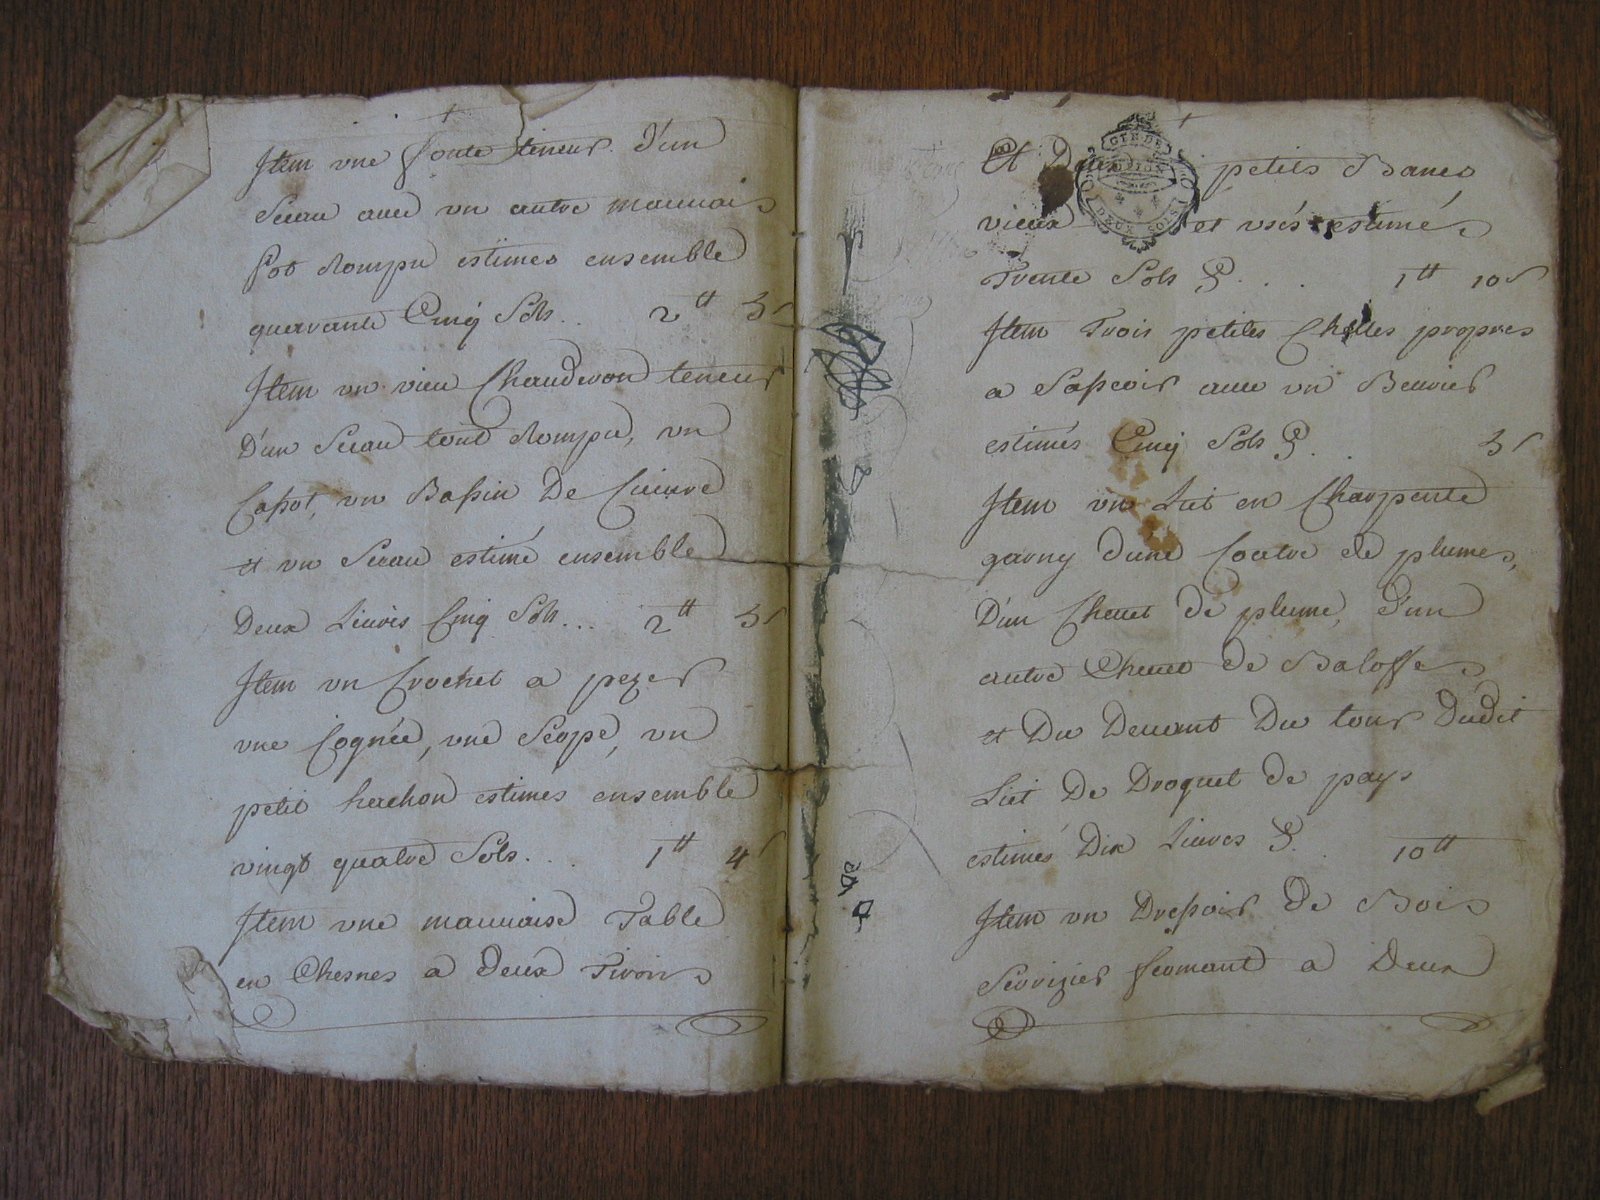 Item vne fonte teneur d'un
Seau auec vn autre mauuais
Pot Rompu estimes ensemble
quarante Cinq Sols.. 2tt 5s
Item vn vieu Chauderon teneur
D'un Seau tout Rompu, vn
Capot, vn Bassin De Cuiure
et vn Seau estimé ensemble
Deux Liures Cinq Sols... 2tt 5s
Item vn Crochet a pezer
vne Cognée, vne Seope, vn
petit hachon estimes ensemble
vingt quatre Sols... 1tt 4s
Item vne mauuaise Table
en Chesnes a deux Tiroirs
Et Deux petits Bancs
vieux et vsés estimés
Trente Sols ... 1tt 10s
Item Trois petites Chelles propres
a Sasseoir auec vn
estimés Cinq Sols .. 5s
Item vn Lit en Charpente
garny d'une Coutre de plumes,
D'un Cheuet de plume, d'un
autre Cheuet de Baloffes
et Du Deuant Du tour Dudit
Lit De Droguet de pays
estimés Dix Liures . 10tt
Item vn Dressoir de Bois
Serizier fermant a Deux
GEN. DE
DEUX SOLS